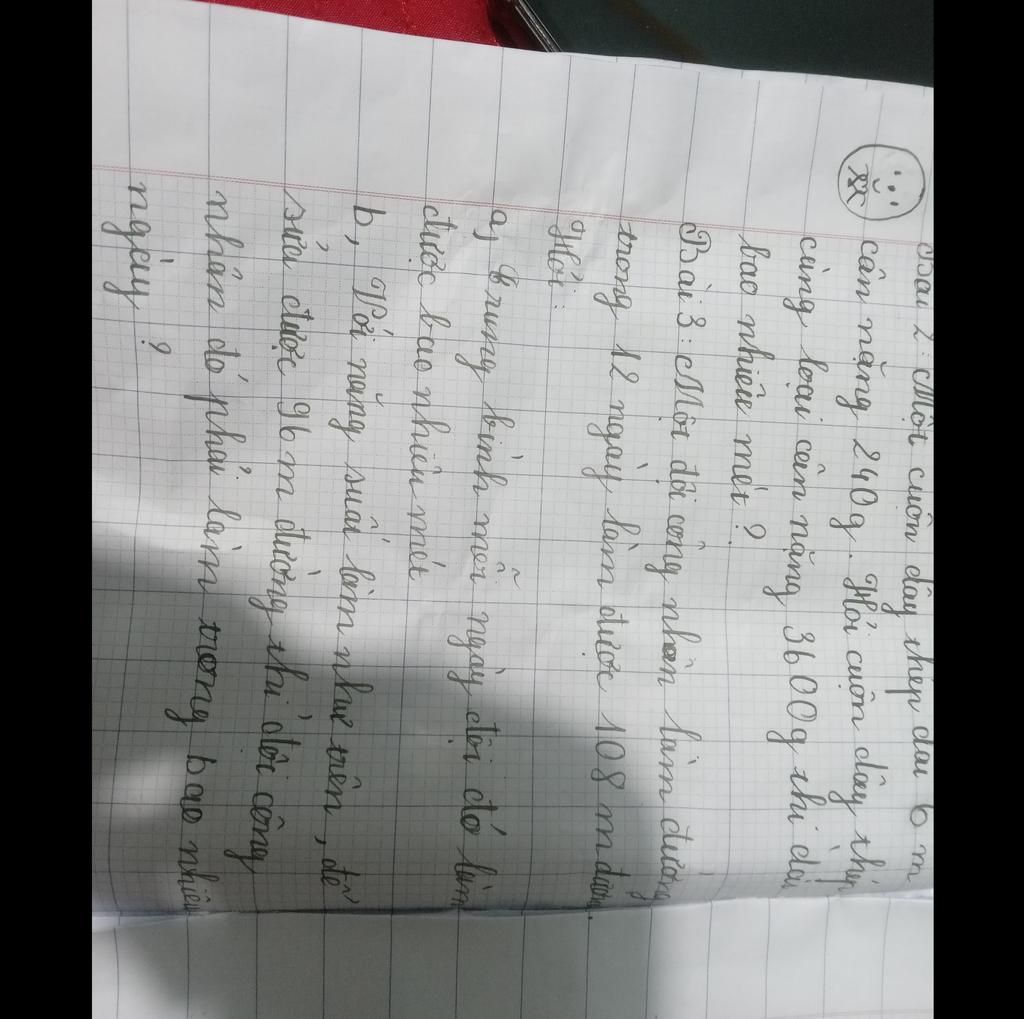 Bài 2: Một cuộn dây thép dài 6 m
cân nặng 240g. Hỏi cuộn dây thép
cùng loại cân nặng 3600g thì dài
bao nhiêu mét?
Bài 3: Một đội công nhân làm đường
trong 12 ngày làm được 108 m đường.
Hỏi:
a, Trung bình mỗi ngày đội đó làm
được bao nhiêu mét
b, Với năng suất làm như trên, để
sửa được 96 m đường thì đội công
nhân đó phải làm trong bao nhiêu
ngày?